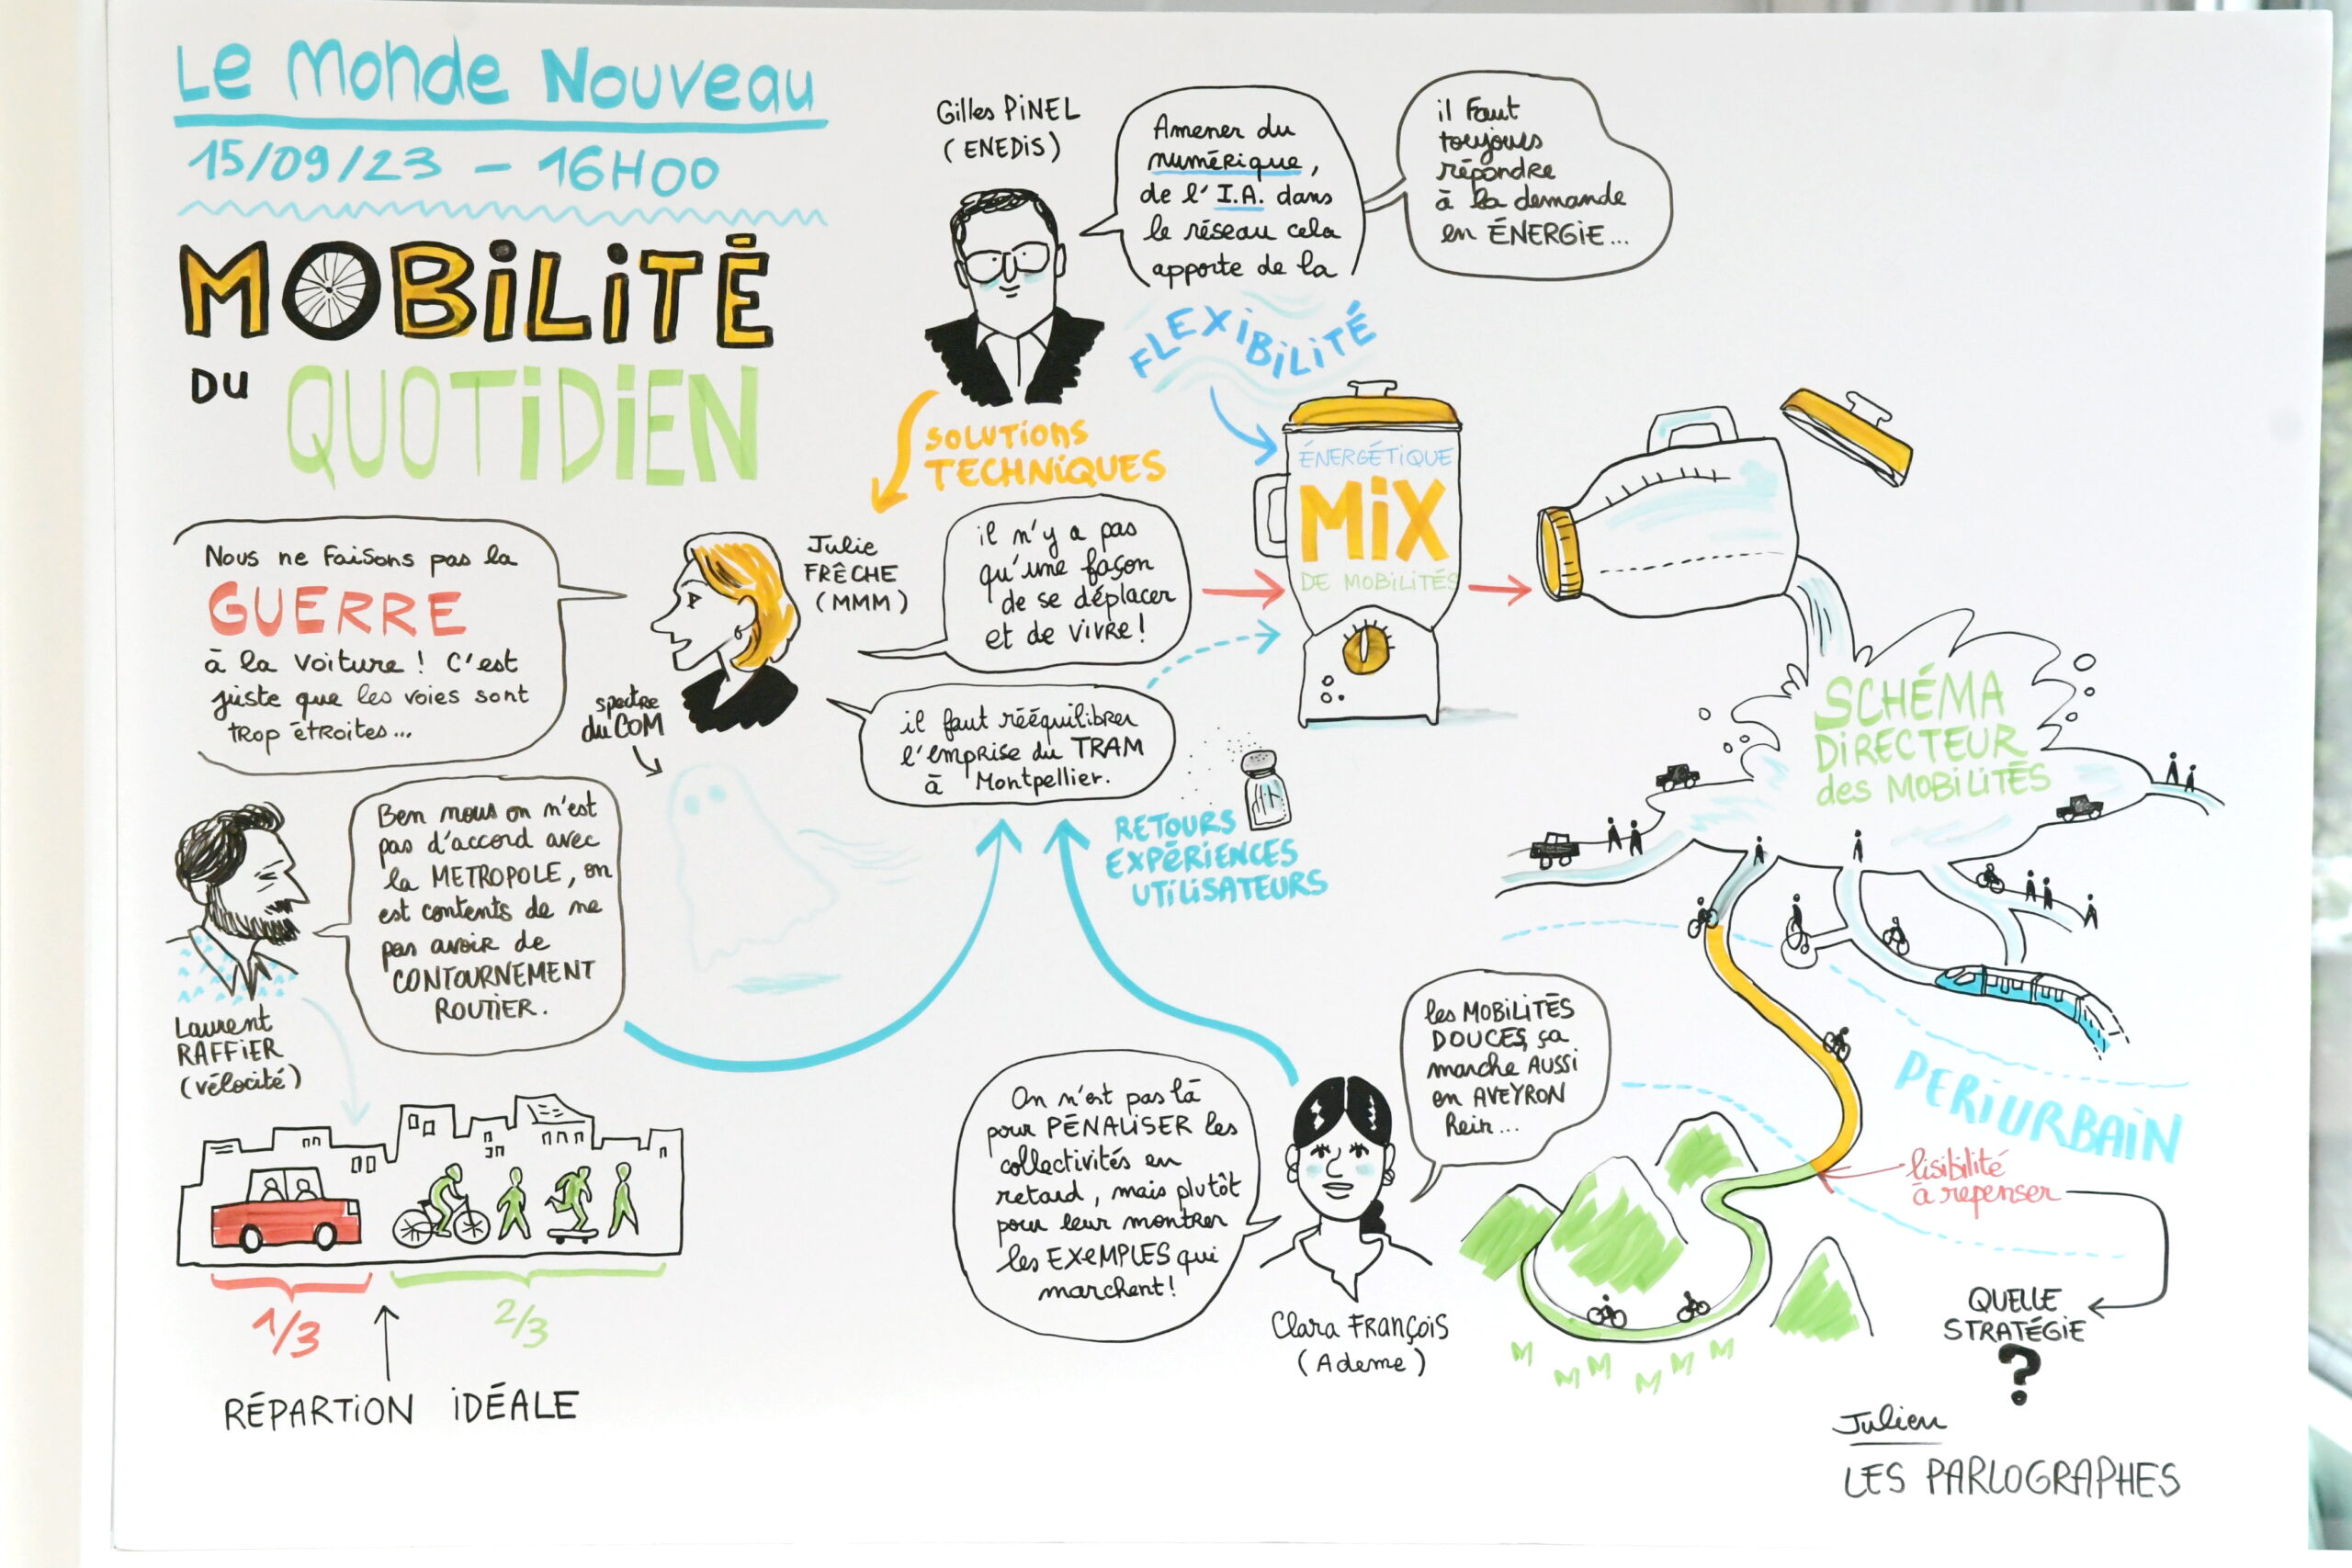 Le Monde Nouveau
15/09/23 - 16H00
MOBiLiTÉ
DU QUOTiDiEN
Gilles PiNEL
(ENEDiS)
Amener du
numérique,
de l'I.A. dans
le réseau cela
apporte de la
FLEXiBiLiTÉ
il Faut
toujours
répondre
à la demande
en ÉNERGiE...
SOLUTiONS
TECHNiQUES
Nous ne Faisons pas la
GUERRE
à la voiture ! C'est
juste que les voies sont
trop étroites...
Julie
FRÊCHE
(MMM)
il n'y a pas
qu'une façon
de se déplacer
et de vivre !
il faut rééquilibrer
l'emprise du TRAM
à Montpellier.
spectre
du COM
ÉNERGÉTiQUE
MiX
DE MOBiLiTÉS
RETOURS
EXPÉRiENCES
UTiLiSATEURS
SCHÉMA
DiRECTEUR
des MOBiLiTÉS
Ben nous on n'est
pas d'accord avec
la METROPOLE, on
est contents de ne
pas avoir de
CONTOURNEMENT
ROUTiER.
Laurent
RAFFiER
(vélocité)
1/3
2/3
RÉPARTiON iDÉALE
On n'est pas là
pour PÉNALiSER les
collectivités en
retard, mais plutôt
pour leur montrer
les EXEMPLES qui
marchent !
les MOBiLiTÉS
DOUCES, ça
marche AUSSi
en AVEYRON
hein...
Clara FRANÇOiS
(Ademe)
PERiURBAiN
lisibilité
à repenser
QUELLE
STRATÉGiE
?
Julien
LES PARLOGRAPHES